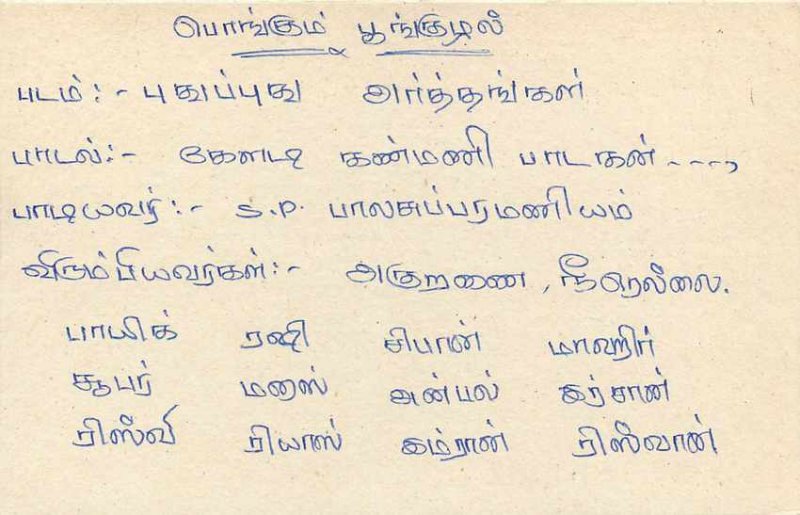 பொங்கும் பூங்குழலி
படம்:- புதுப்புது அர்த்தங்கள்
பாடல்:- கேளடி கண்மணி பாடகன் ----,
பாடியவர்:- S.P. பாலசுப்பரமணியம்
விரும்பியவர்கள்:- அகுறணை, நீரெல்லை.
பாயிக் ரஷி சிபான் மாஹிர்
சூபர் மனாஸ் அன்பல் இர்சான்
றிஸ்வி றியாஸ் கம்ரான் றிஸ்வான்